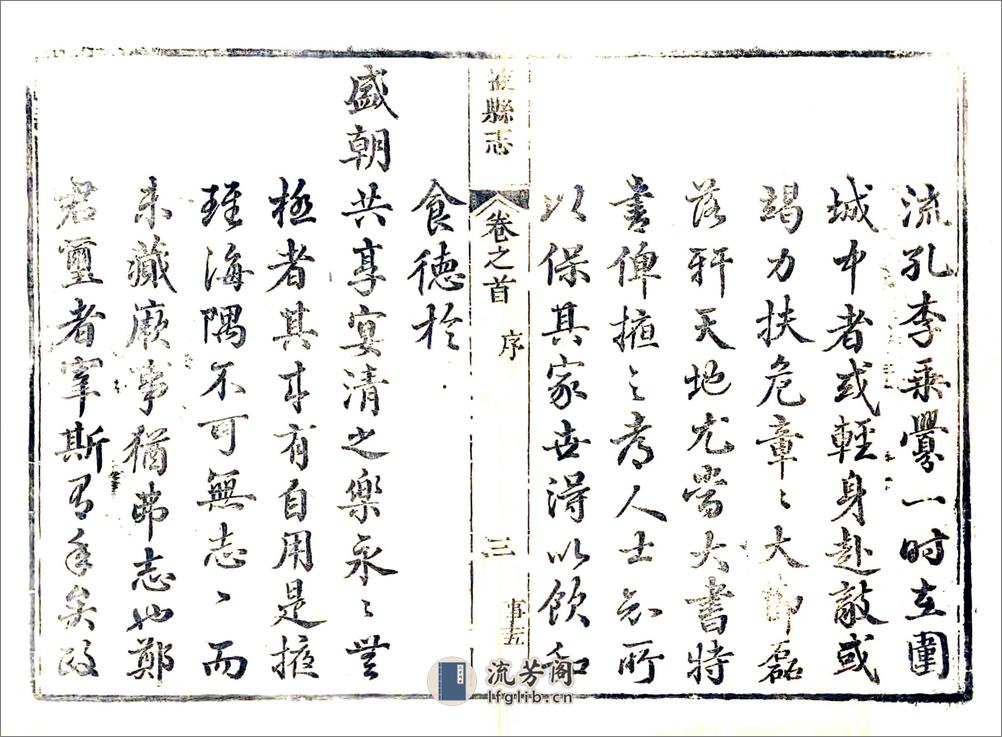 流孔李乗釁一時在圍
城中者或輕身赴敵或
竭力扶危章〻大節磊
落軒天地尤當大書特
書俾掖之考人士知所
以保其家世得以飲和
掖縣志
卷之首
序
三
事五
食德於
盛朝共享宴清之樂永〻無
極者其才有自用是掖
瑾海隅不可無志〻而
未藏厥事猶弗志也鄭
君璽者宰斯有年矣政
流芳阁
lfglib.cn